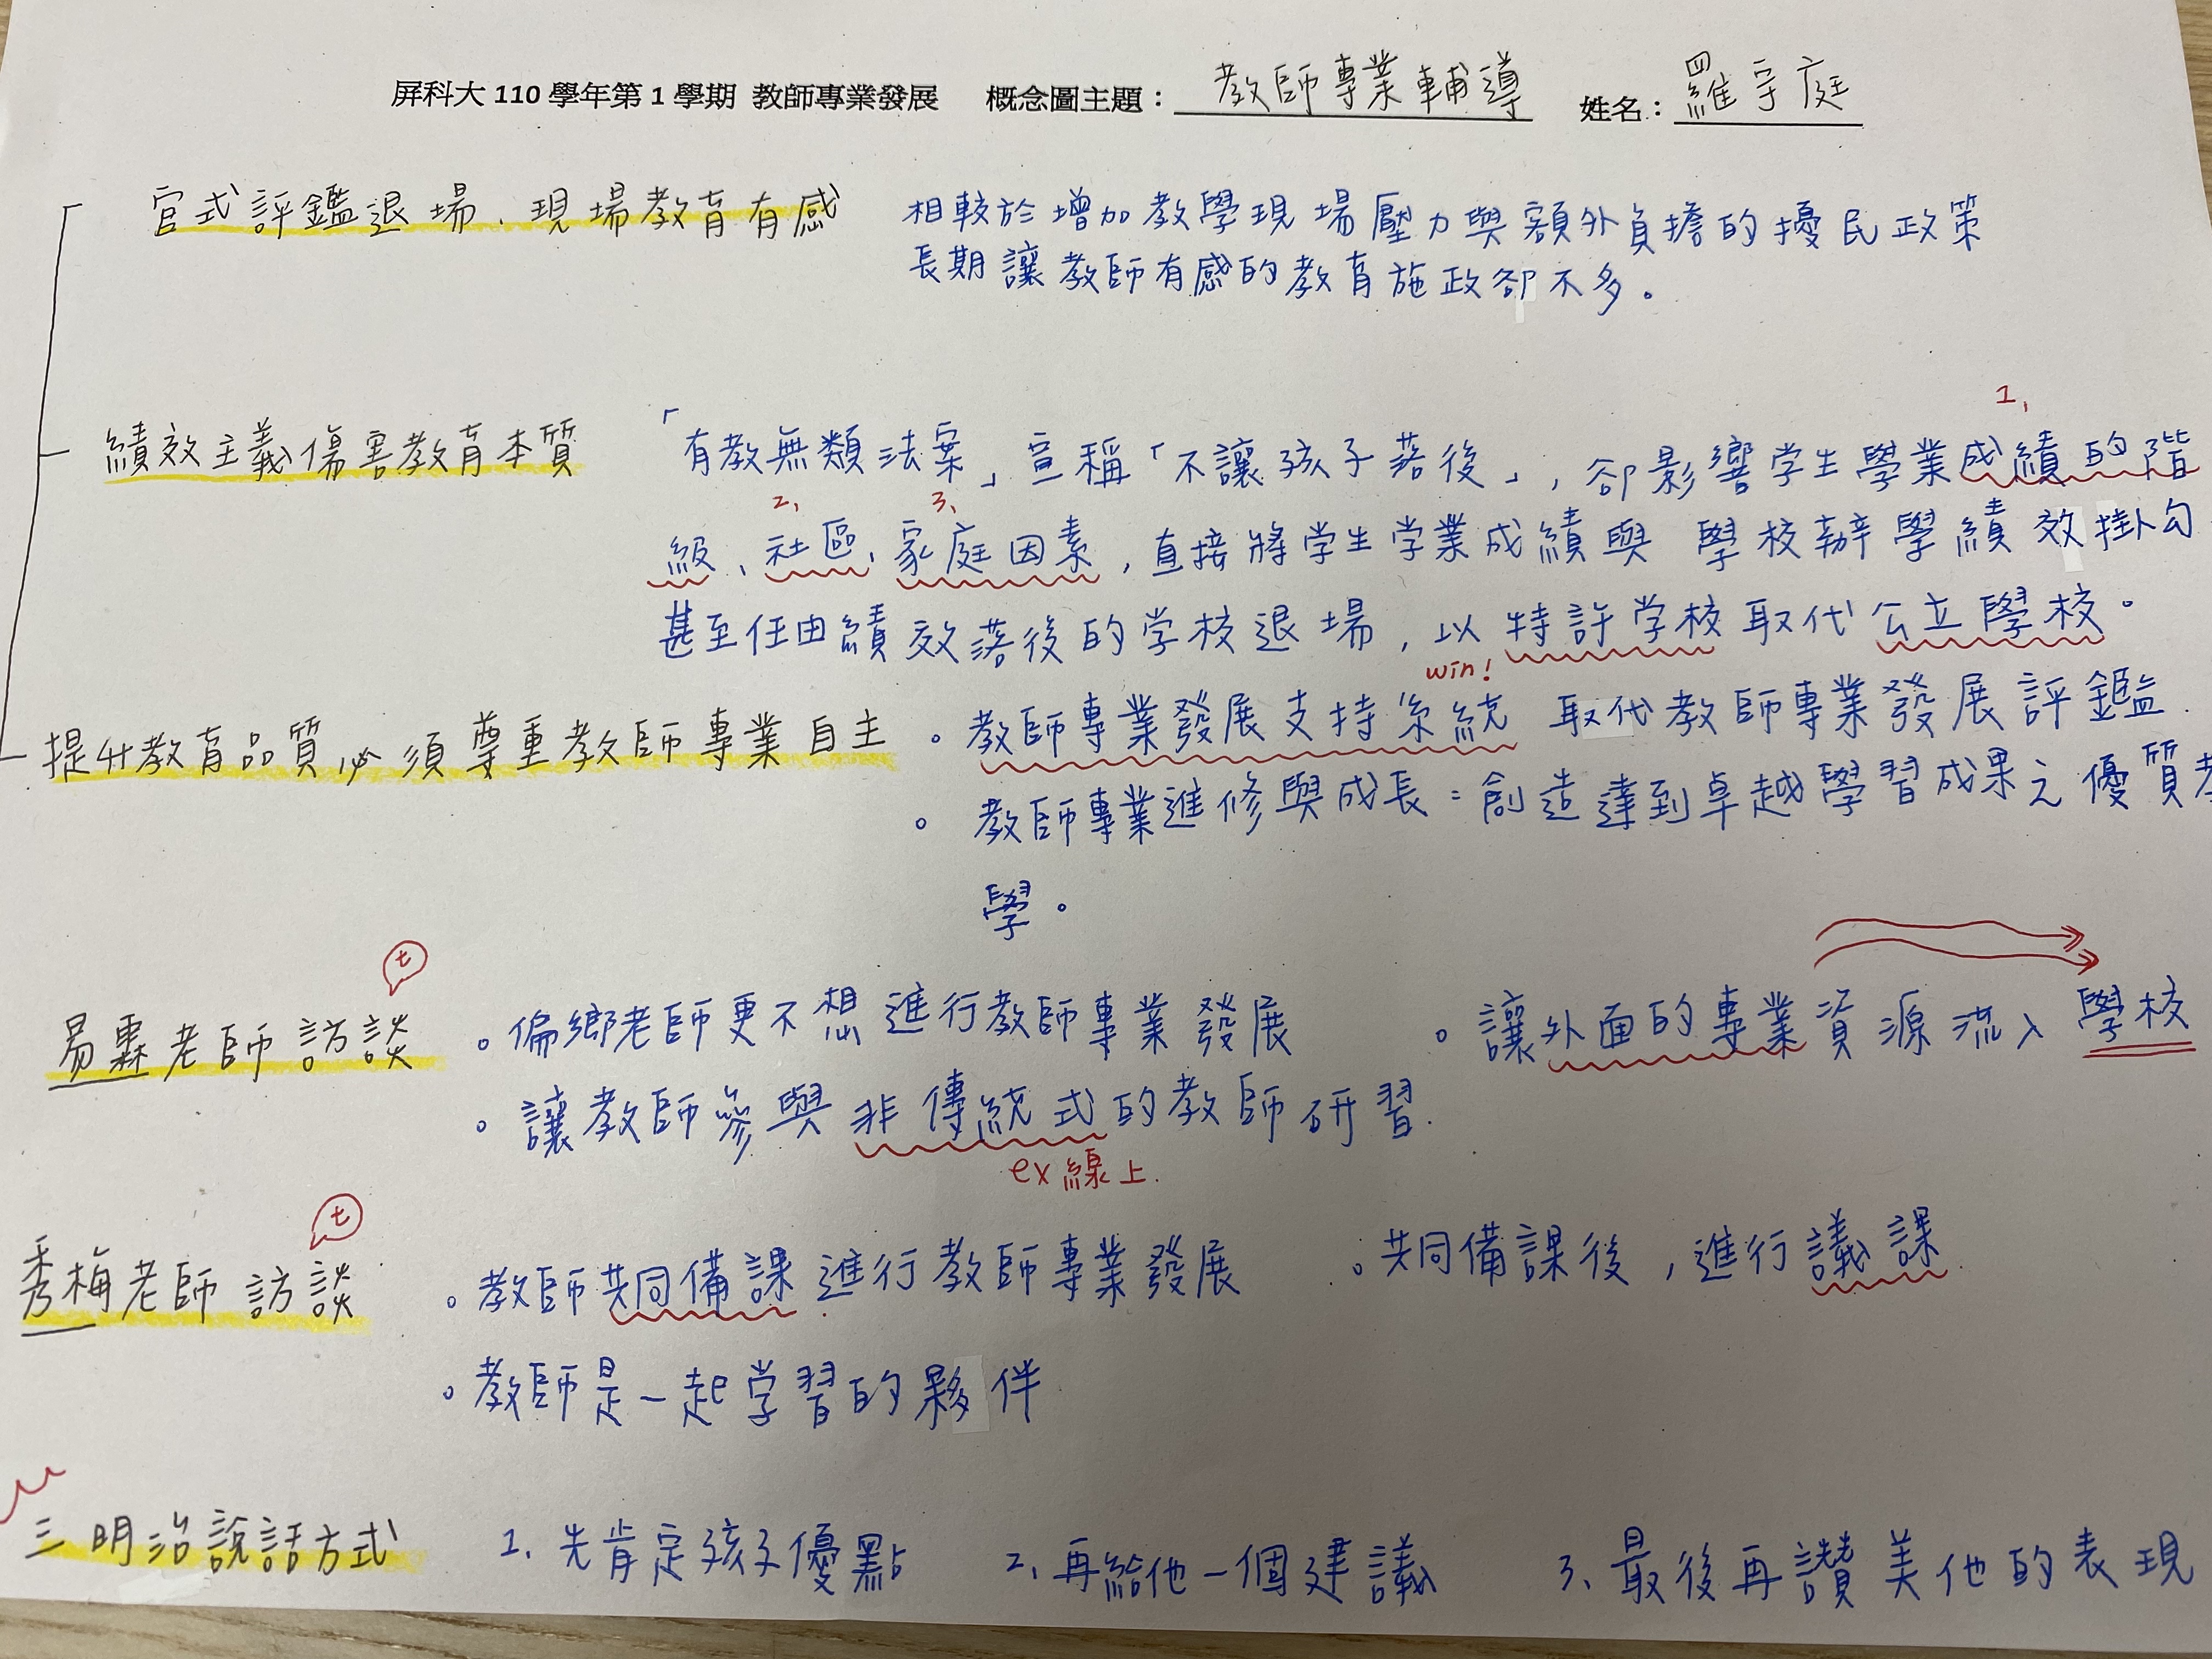 屏科大 110 學年第 1 學期 教師專業發展 概念圖主題：教師專業輔導 姓名：羅宇庭
四
官式評鑑退場、現場教育有感 相較於增加教學現場壓力與額外負擔的擾民政策
長期讓教師有感的教育施政卻不多。
1、
績效主義傷害教育本質 「有教無類法案」宣稱「不讓孩子落後」，卻影響学生學業成績的階
2、 3、
級、社區、家庭因素，直接將学生学業成績與 學校辦學績效掛勾
甚至任由績效落後的学校退場，以特許学校取代公立學校。
win!
提升教育品質必須尊重教師專業自主 。教師專業發展支持系統 取代教師專業發展評鑑.
。教師專業進修與成長：創造達到卓越學習成果之優質教
學。
t
易霖老師訪談 。偏鄉老師更不想進行教師專業發展 。讓外面的專業資源流入學校
。讓教師參與非傳統式的教師研習.
ex 線上.
t
秀梅老師訪談 。教師共同備課進行教師專業發展 。共同備課後，進行議課
。教師是一起学習的夥伴
三明治說話方式 1、先肯定孩子優點 2、再給他一個建議 3、最後再讚美他的表現